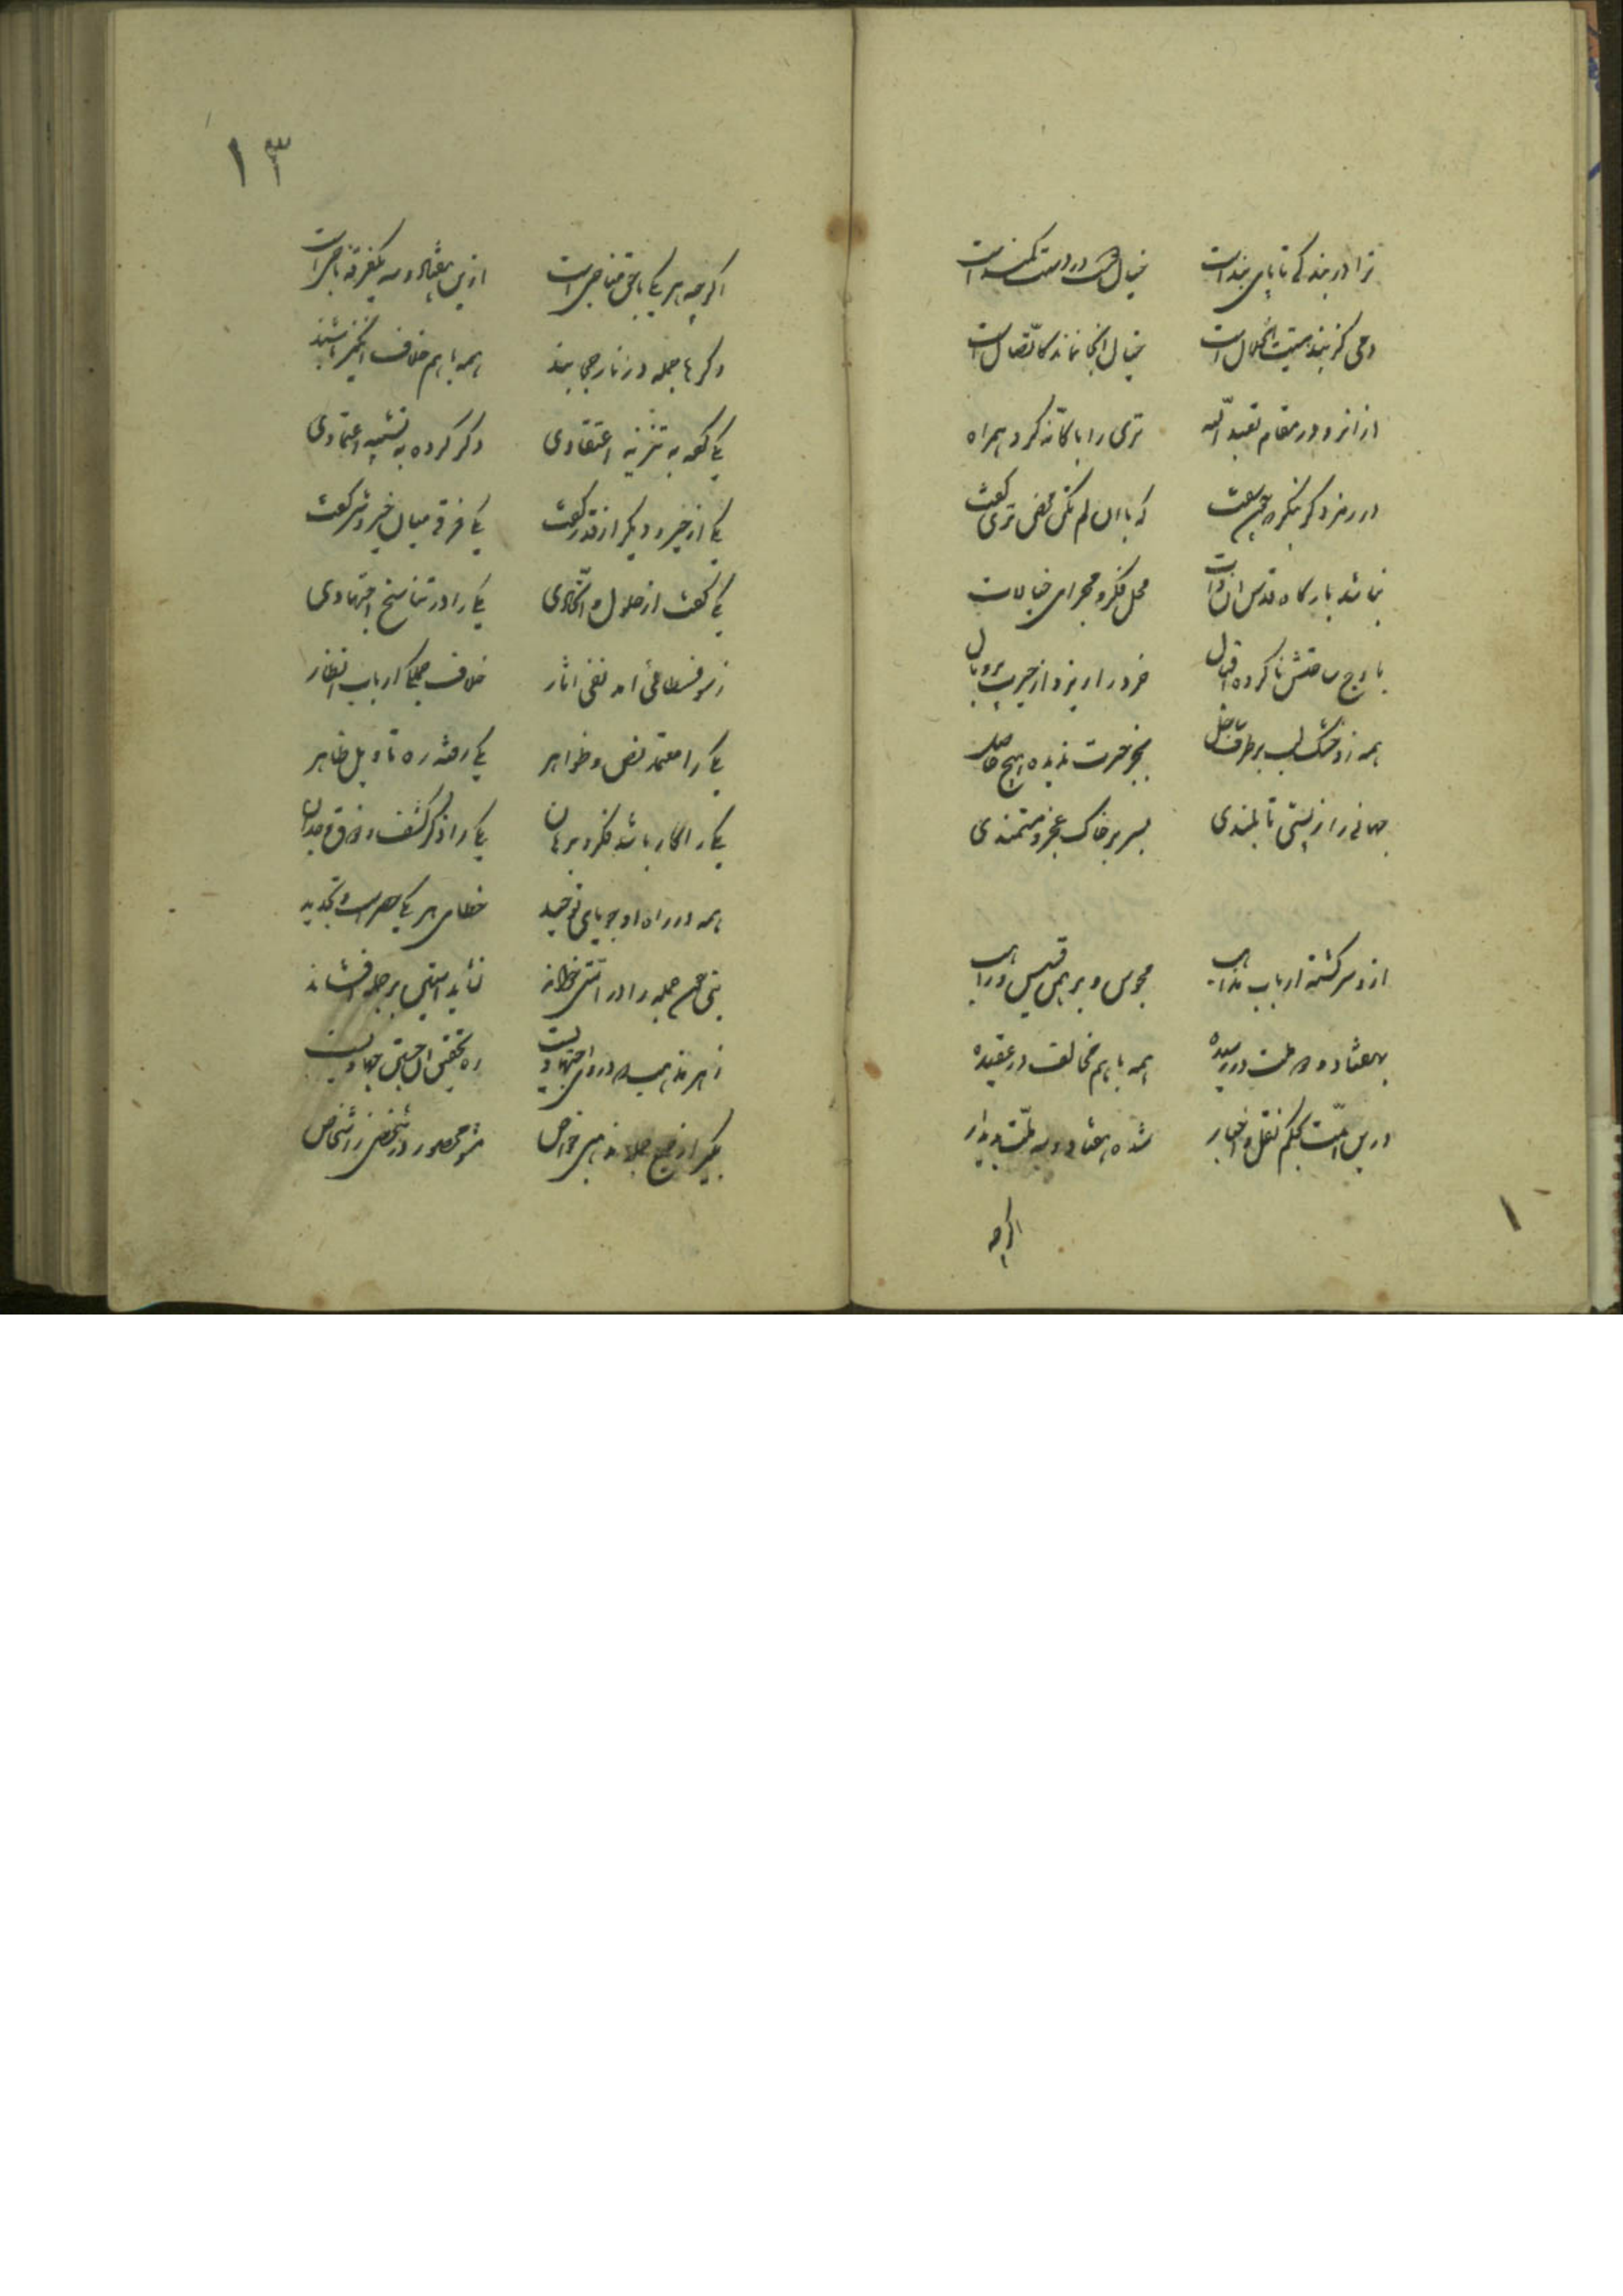 ترا در بندگی تا پای بند است خیالش در دست کمند است
دمی کز بند هستیت انحلال است خیال اینجا نماند کاتصال است
از انرو در مقام تعبد الله تری را با کانه کرد همراه
در رمز دگر بنگر چسان سفت که با ان لم تکن محض تری گفت
نباشد بارگاه قدس ان ذات محل فکر و مجرای خیالات
باوج ساحتش ناکرده اقبال خرد را ریزد از حیرت پر و بال
همه زو خشک لب بر طرف ساحل بجز حیرت ندیده هیچ حاصل
جهانی را ز پستی تا بلندی بسر بر خاک عجز و مستمندی
ازو سرگشته ارباب مذاهب مجوس و برهمن قسیس و راهب
بهفتاد و دو ملت در رسیده همه با هم مخالف در عقیده
درین امت بحکم نقل و اخبار شده هفتاد و سه ملت پدیدار
اگرچه
۱۳
اگرچه هر یکی با حق مناجی است ازین هفتاد و سه یکفرقه ناجی است
دگرها جمله در نار جحیمند همه با هم خلاف انگیز
یکی گفته به تنزیه اعتقادی دگر کرده به تشبیه اعتمادی
یکی از خیر و دیگر از قدر گفت یکی فرقی میان خیر و شر گفت
یکی گفت از حلول و اتحادی یکی را در تناسخ اجتهادی
ز سوفسطائی امد نفی اثار خلاف جملگی ارباب انظار
یکی را معتمد نص و ظواهر یکی رفته ره تاویل ظاهر
یکی را کار باشد فکر و برهان یکی را ذکر کشف و ذوق وجدان
همه در راه او جویای توحید خطای هر یکی حصر است و تحدید
نبی چون جمله را در امتی خواند نباید استین بر جمله افشاند
ز هر مذهب که در وی اجتهادیست ره تحقیق ان جستن جهادیست
بگیر از جمع جمله مذهبی خاص مشو محصور در شخصی ز اشخاص